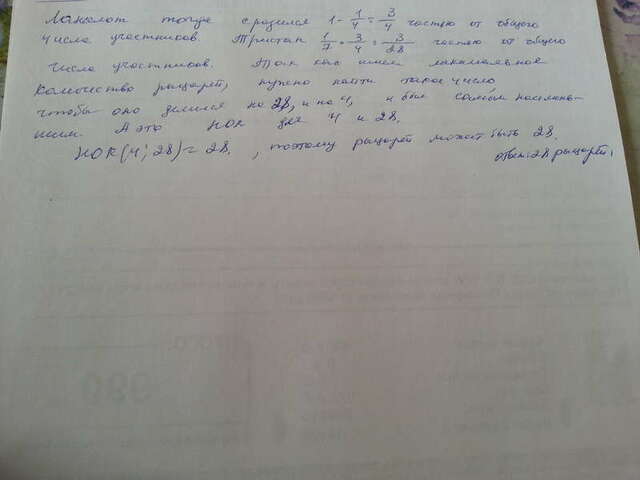 Ланселот тогда сразился 1-1/4=3/4 частью от общего
числа участников. Тристан 1/7·3/4=3/28 частью от общего
числа участников. Так как имеем
количество рыцарей, нужно найти такое число
чтобы оно делился на 28, и на 4, и был самым
А это НОК для 4 и 28.
НОК(4;28)=28. , поэтому рыцарей может быть 28.
ответ:28 рыцарей.